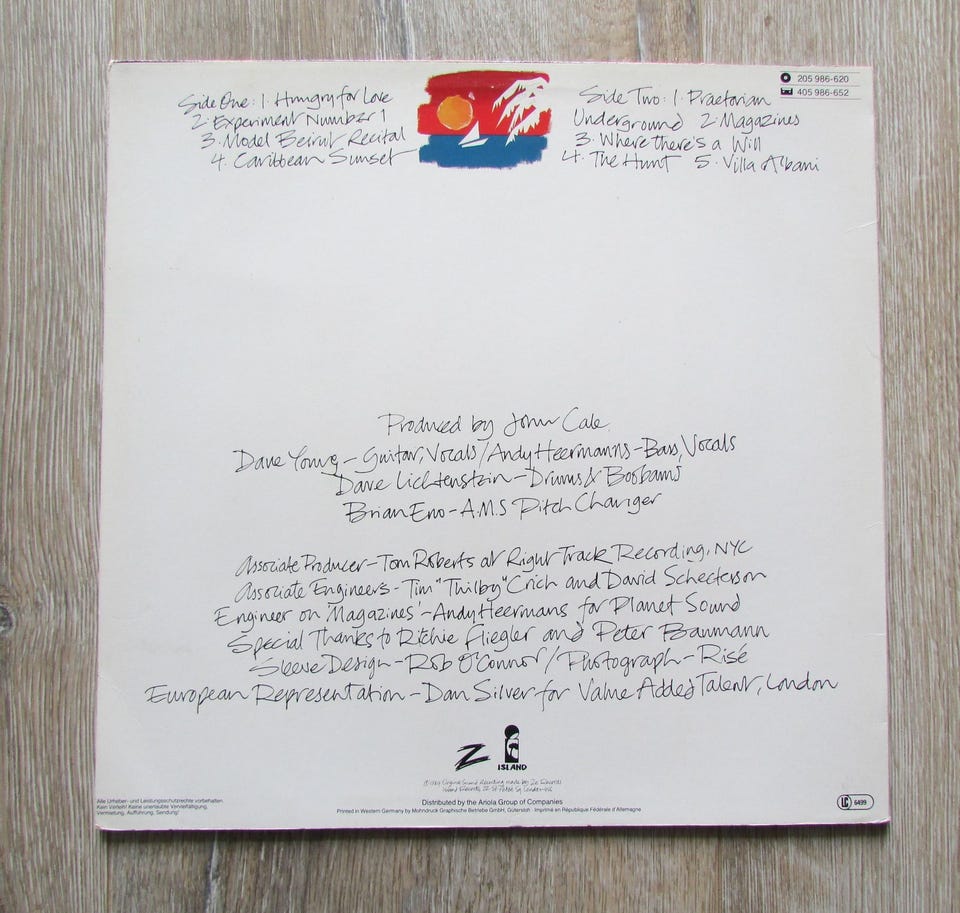 Side One: 1. Hungry for Love
2. Experiment Number 1
3. Model Beirut Recital
4. Caribbean Sunset
Side Two: 1. Praetorian
Underground 2. Magazines
3. Where there's a Will
4. The Hunt 5. Villa Albani
205 986-620
405 986-652
Produced by John Cale.
Dave Young - Guitar, Vocals / Andy Heermanns - Bass, Vocals
Dave Lichtenstein - Drums & Boobams
Brian Eno - A.M.S Pitch Changer
Associate Producer - Tom Roberts at Right Track Recording, NYC
Associate Engineers - Tim "Thilby" Crich and David Schecterson
Engineer on 'Magazines' - Andy Heermans for Planet Sound
Special Thanks to Richie Fliegler and Peter Baumann
Sleeve Design - Rob O'Connor / Photograph - Risé
European Representation - Dan Silver for Value Added Talent, London
Z
ISLAND
Original Sound Recording made by Ze Records
Island Records, 22 St Peters Sq, London W6
Distributed by the Ariola Group of Companies
Printed in Western Germany by Mohndruck Graphische Betriebe GmbH, Gütersloh · Imprimé en République Fédérale d'Allemagne
Alle Urheber- und Leistungsschutzrechte vorbehalten.
Kein Verleih! Keine unerlaubte Vervielfältigung,
Vermietung, Aufführung, Sendung!
LC 6499